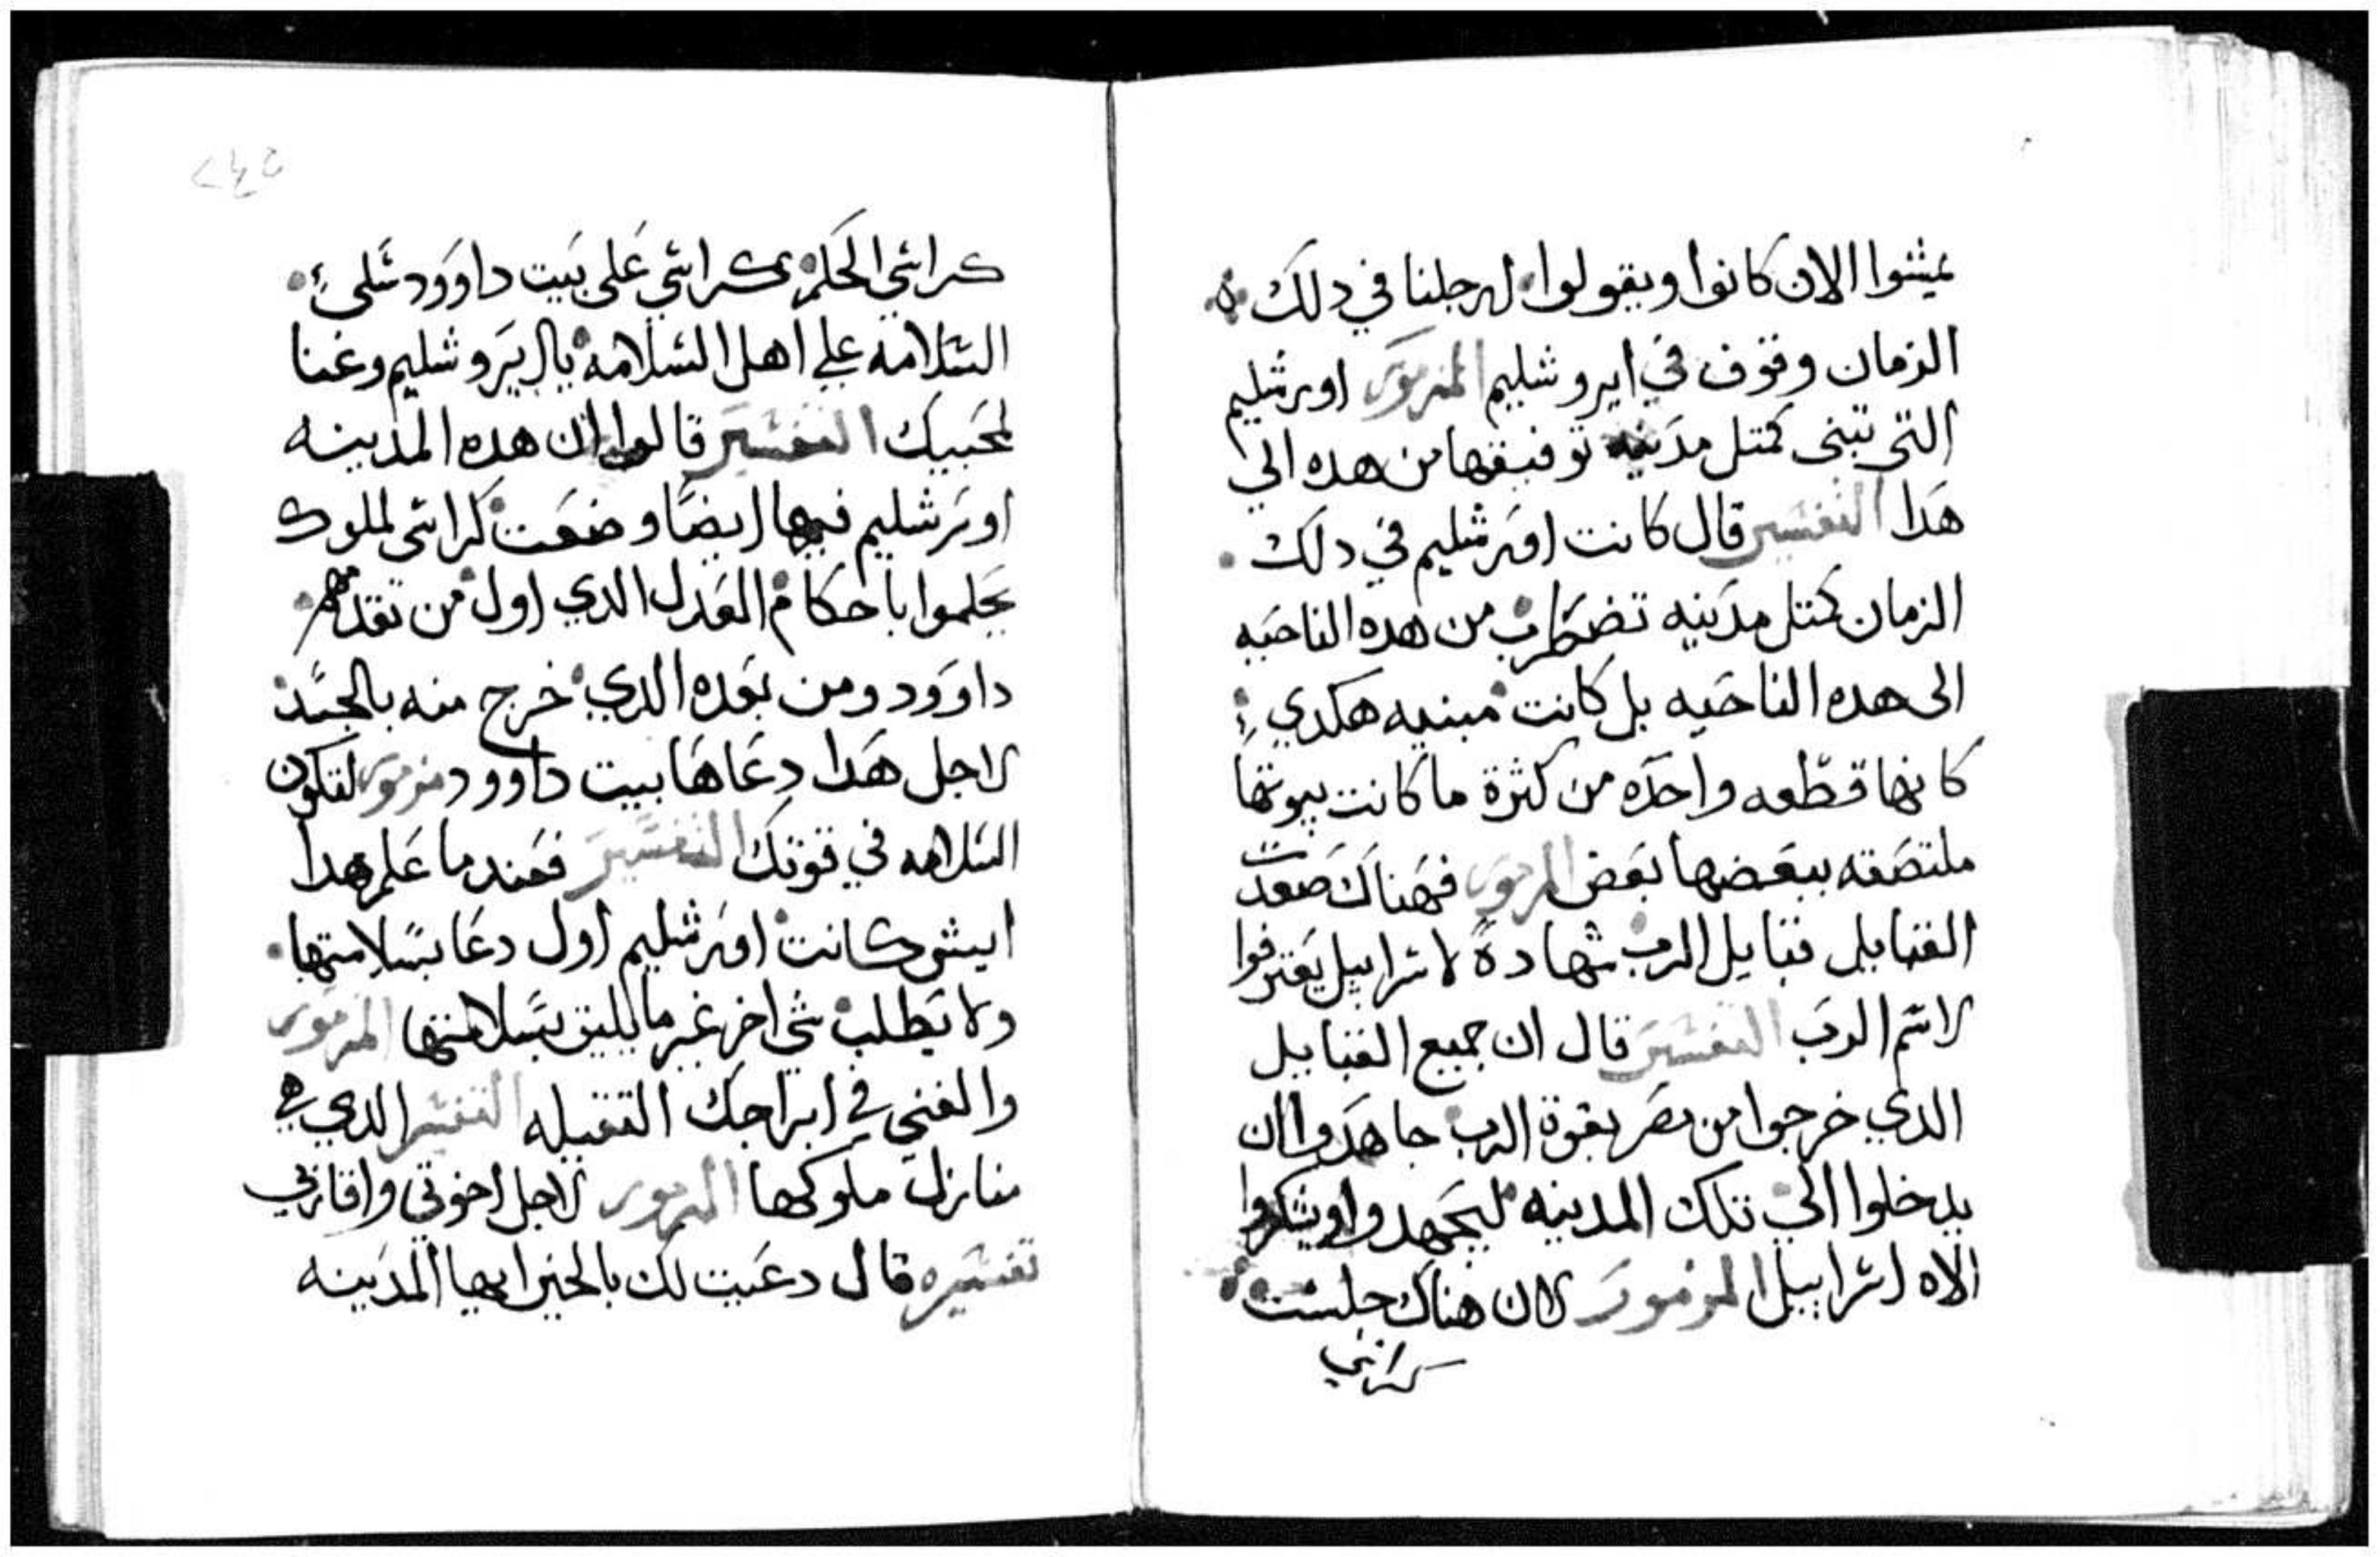 عيشوا الان كانوا ويقولوا لرجلنا في دلك
الزمان وقوف في ايروشليم المزمور اورشليم
التي تبنى كمتل مدينه توفيقها من هده الي
هدا التفسير قال كانت اورشليم في دلك
الزمان كمتل مدينه تضطرب من هده الناحيه
الى هده الناحيه بل كانت مبنيه هكدي
كانها قطعه واحده من كثرة ما كانت بيوتها
ملتصقه ببعضها بعض المزمور فهناك صعدت
القبايل قبايل الرب شهادة لاسراييل يعترفوا
لاسم الرب التفسير قال ان جميع القبايل
الدي خرجوا من مصر بقوة الرب جاهدوا ان
يدخلوا الي تلك المدينه ليجهدوا ويشكروا
الاه اسراييل المزمور لان هناك جلست
كراسي
٢٤٥
كراسي الحكم كراسي على بيت داوود سلي
السلامه علي اهل السلامه يال يروشليم وغنا
لمحبيك التفسير قالوا ان هده المدينه
اورشليم فيها ايضا وضعت كراسي لملوك
يحلموا باحكام العدل الدي اول من تقدمهم
داوود ومن بعده الدي خرج منه بالجسد
لاجل هدا دعاها بيت داوود مزمور لتكون
السلامه في قوتك التفسير فعندما علم هدا
ايش كانت اورشليم اول دعا بسلامتها
ولا يطلب شي اخر غير ما يليق بسلامتها المزمور
والغني في ابراجك التقيله التفسير الدي هي
منازل ملوكها المزمور لاجل اخوتي واقاربي
تفسيره قال دعيت لك بالخير ايها المدينه